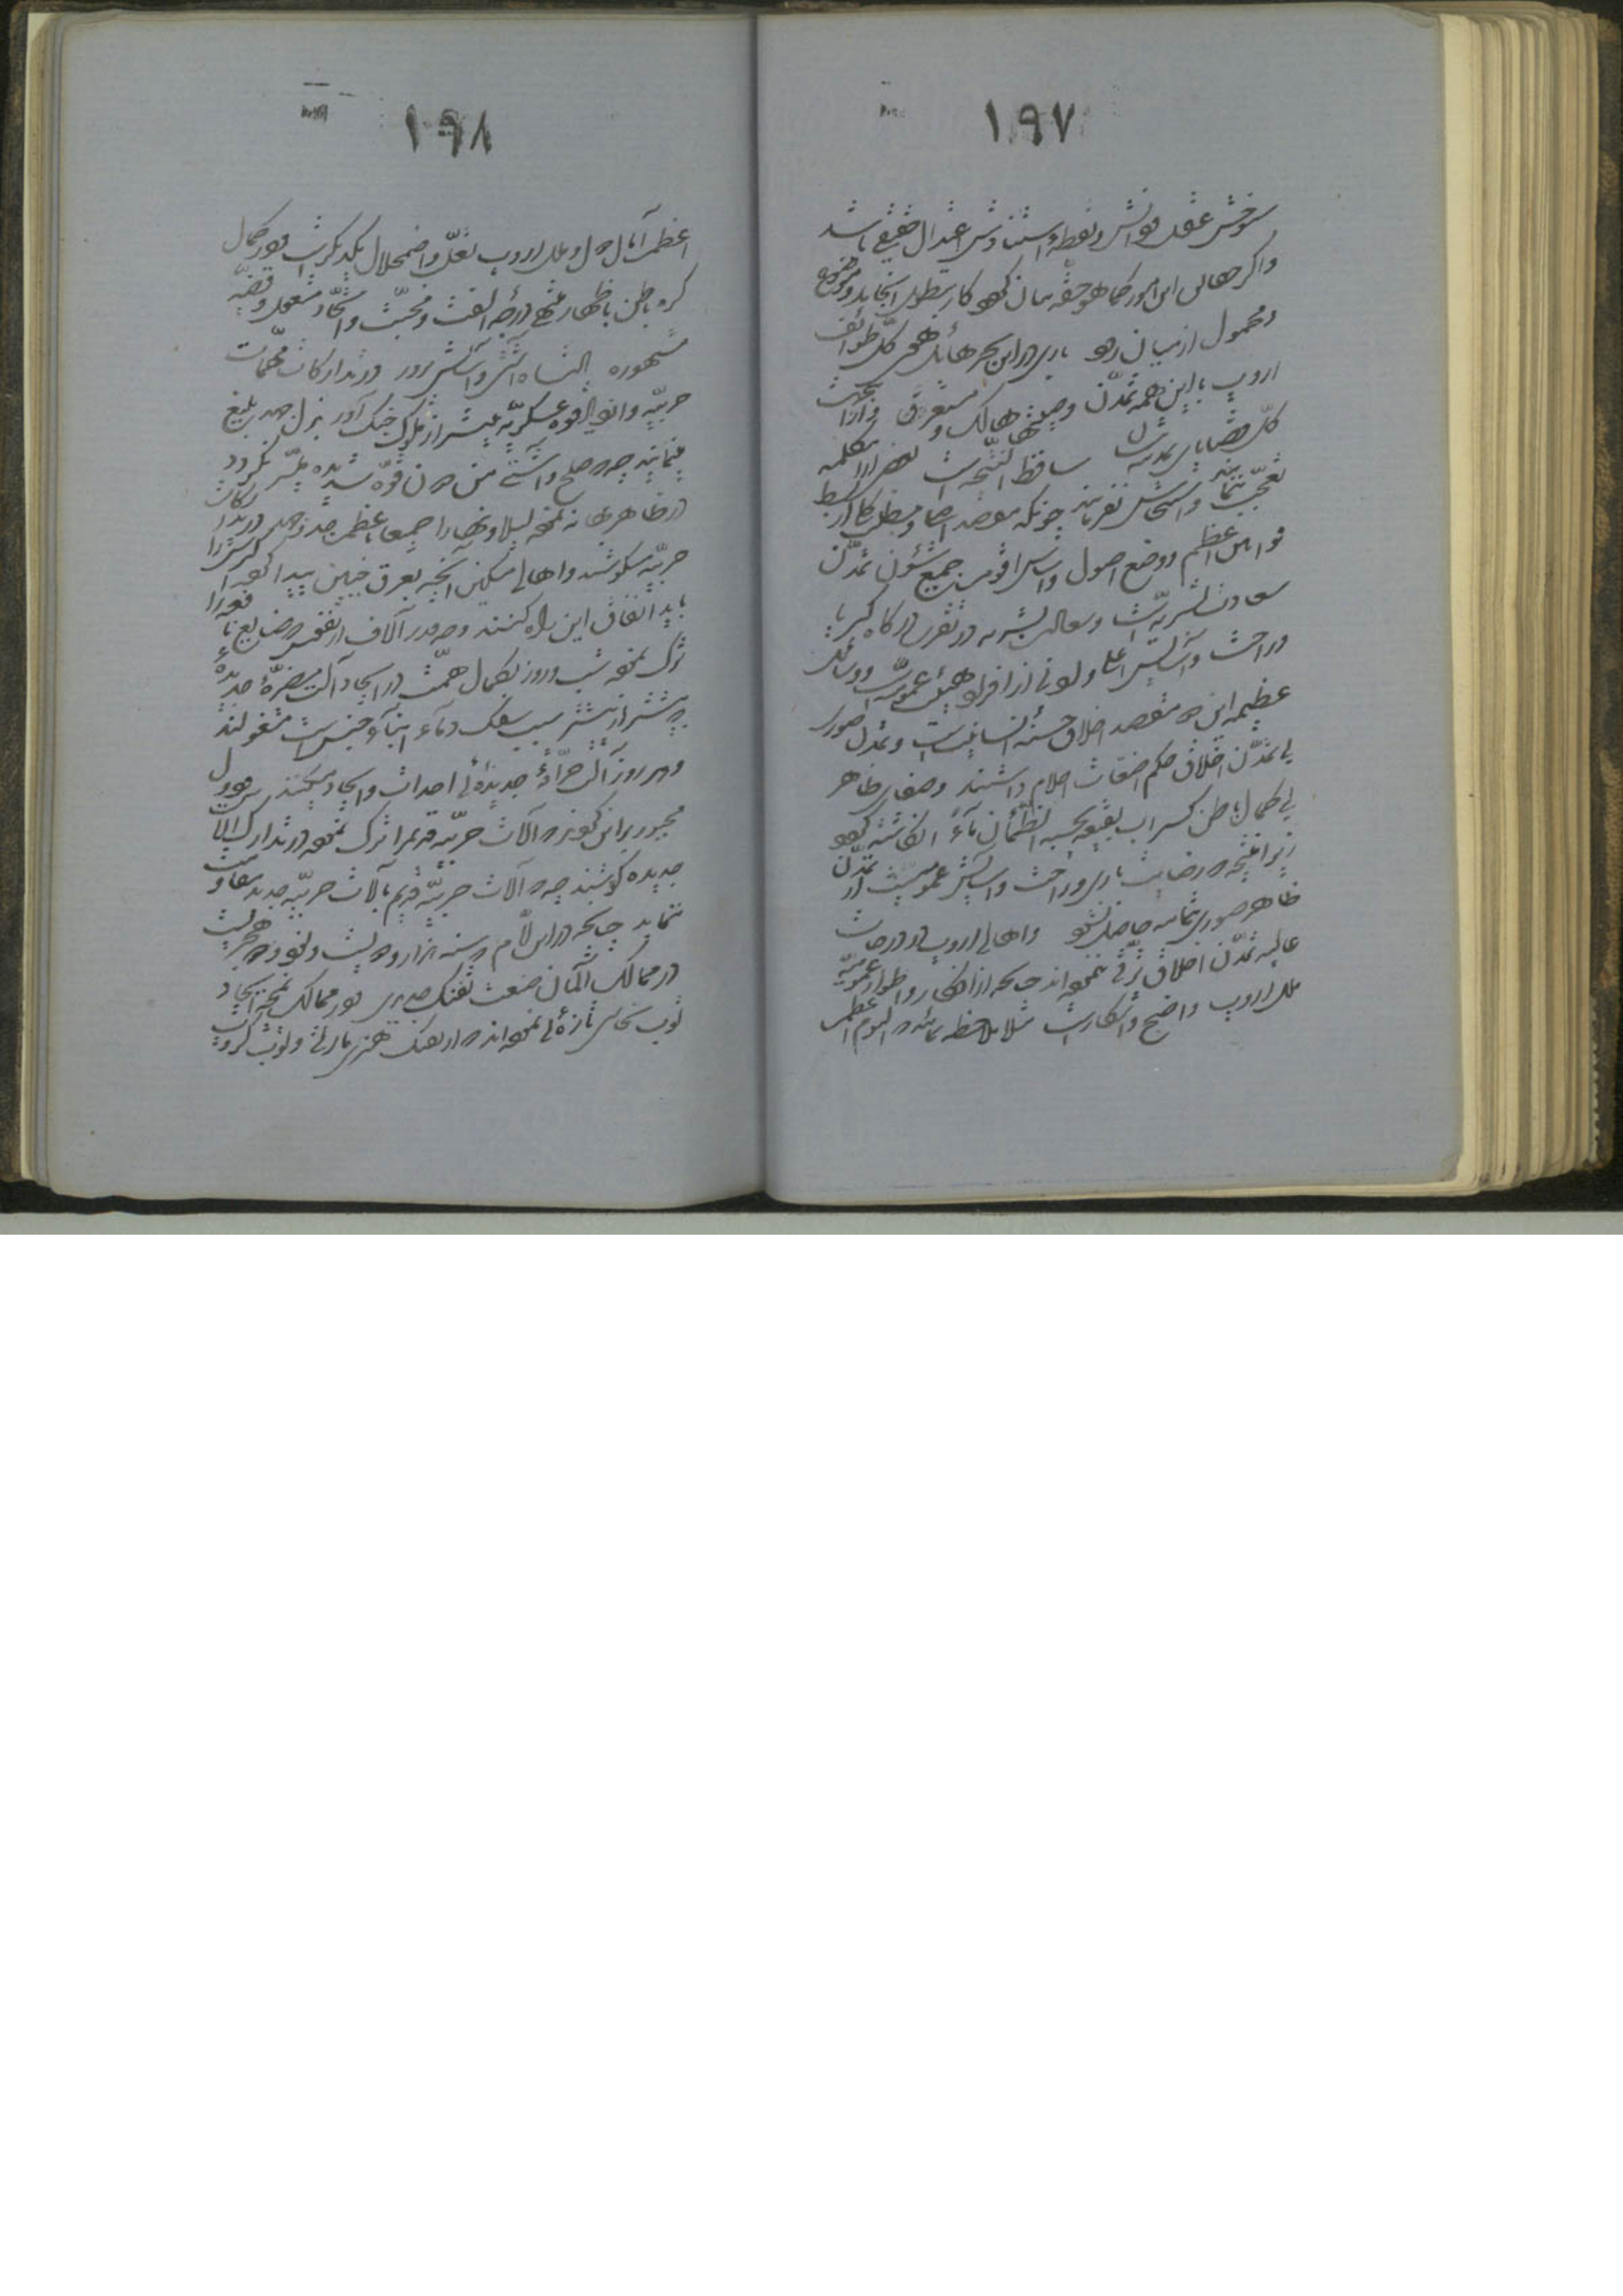 ١٩٧
سوختش عقل و دانش و نقطهٔ استنادش اعتدال حقیقی باشد
واگر حقایق این امور کما هو حقه بیان شود کار بتطویل انجامد و موضوع
و محمول از میان رود باری در این بحر هائل هوی کل طوائف
اروپ با این همه تمدن وصیتها هالک و مستغرق و از این جهت
کل قضایای تمدنشان ساقط النتیجه است نفسی از این کلمه
تعجب ننماید و استیحاش نفرماید چونکه مقصد اصلی و مطلب کلی از بسط
قوانین اعظم و وضع اصول و اساس اقوم جمیع شئون تمدن
سعادت بشریه است و سعادت بشریه در تقرب درگاه کبریا
و راحت و آسایش اعلی و ادنی از افراد هیئت عمومیه است و وسائل
عظیمه این دو مقصد اخلاق حسنهٔ انسانیت است و تمدن صوری
بی تمدن اخلاق حکم اضغاث احلام داشته و صفای ظاهر
بی کمال باطن کسراب بقیعة یحسبه الظمآن ماءً انگاشته گردد
زیرا نتیجه که رضایت باری و راحت و آسایش عمومی است از تمدن
ظاهر صوری بتمامه حاصل نشود و اهالی اروپ در درجات
عالیه تمدن اخلاق ترقی ننموده‌اند چنانکه از افکار و اطوار عمومیه
ملل اروپ واضح و آشکار است مثلا ملاحظه نمائید که الیوم اعظم
١٩٨
اعظم آمال دول و ملل اروپ تغلب و اضمحلال یکدیگر است و در کمال
کره باطن باظهار منتهی درجه الفت و محبت و اتحاد مشغول و قضیه
مشهوره پادشاه آشتی و آسایش پرور در تدارکات مهمات
حربیه و ازدیاد قوهٔ عسکریه بیشتر از ملوک جنگ آور بذل جهد بلیغ
مینمایند چه که صلح و آشتی من دون قوهٔ شدیده میسر نگردد
در ظاهر بهانه نموده لیلا و نهارا جمیعا باعظم جد و جهد در تدارکات
حربیه میکوشند و اهالی مسکین آنچه بعرق جبین پیدا کنند اکثرش را
باید انفاق این راه کنند و چقدر آلاف از نفوس صنایع نافعه را
ترک نموده شب و روز بکمال همت در ایجاد آلت مضرهٔ جدیده
که بیشتر از پیشتر سبب سفک دماء ابناء جنس است مشغولند
و هر روز آلت حرّاقهٔ جدیدهٔ احداث و ایجاد میکنند پس دول
مجبور بر این گردند که آلات حربیه قدیم را ترک نموده در تدارک آلات
جدیده کوشند چه که آلات حربیه قدیم با آلات حربیه جدید مقاومت
ننماید چنانچه در این ایام که سنه هزار و دویست و نود هجریست
در ممالک آلمان صنعت تفنگ جدیدی و در ممالک نمچه ایجاد
توپ نحاس تازهٔ نموده‌اند که از تفنگ هنری مارتی و توپ کروپ